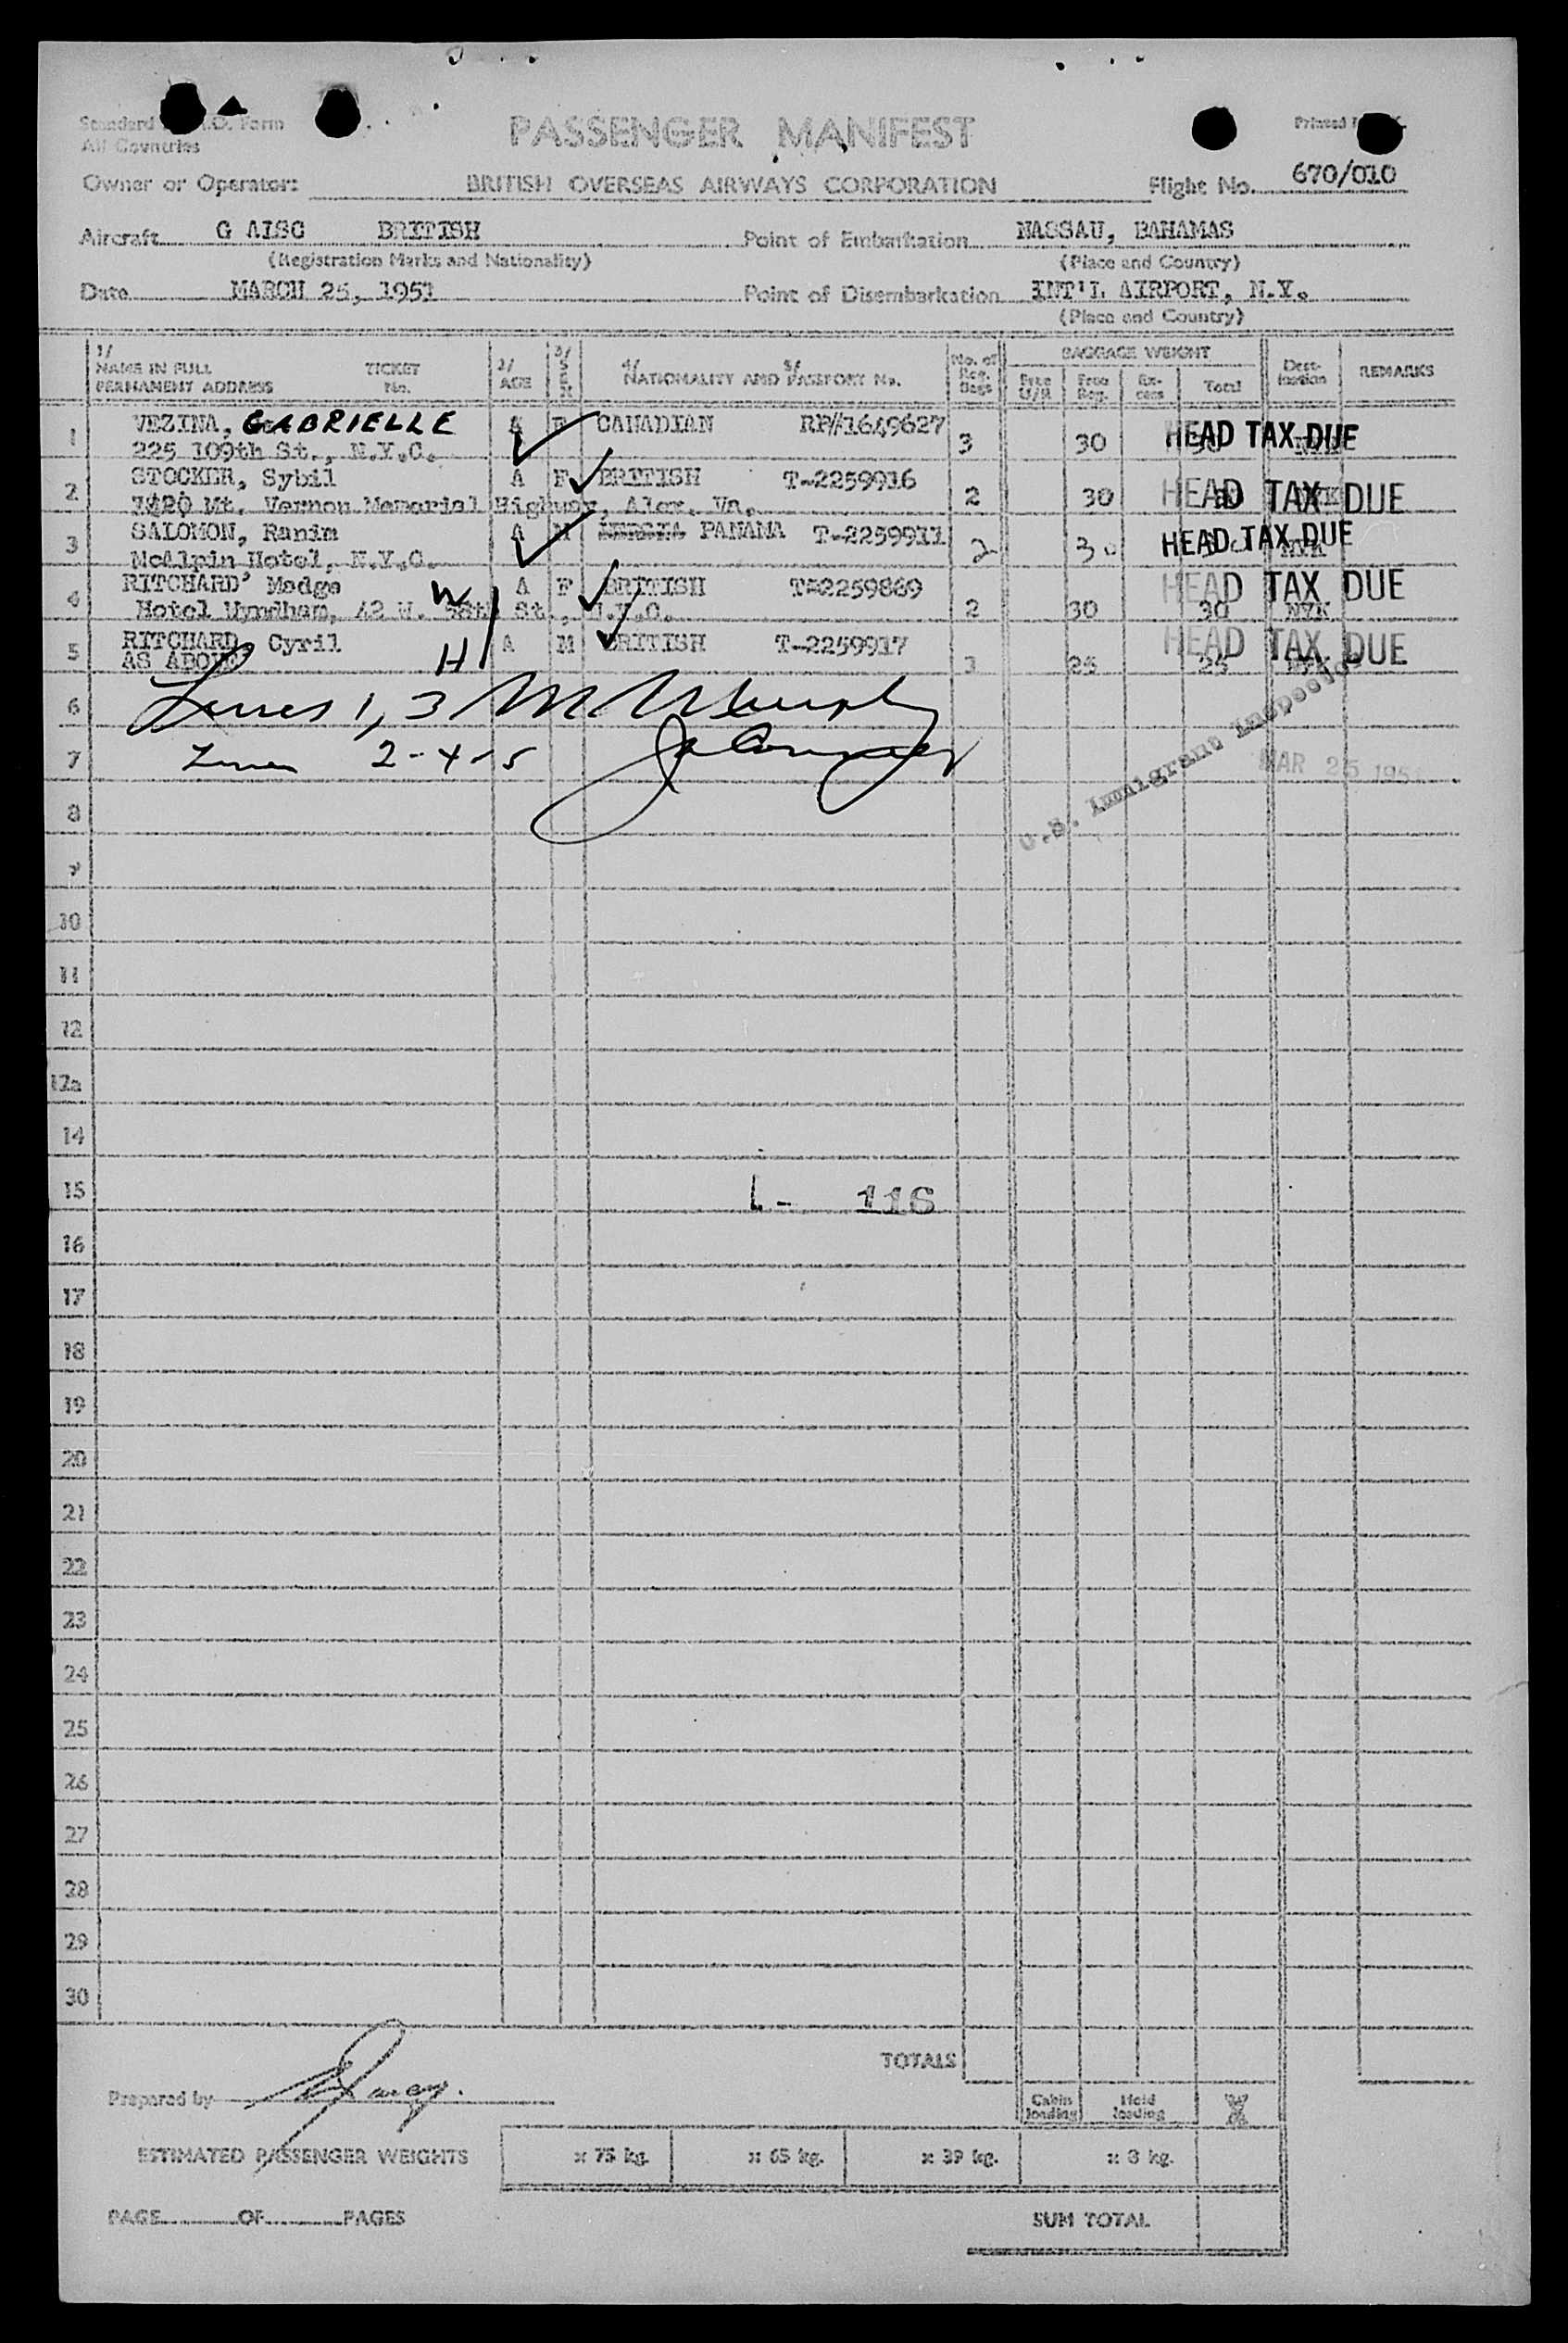 Standard I.A.T.A. Form
All Countries
PASSENGER MANIFEST
Printed
Owner or Operator: BRITISH OVERSEAS AIRWAYS CORPORATION Flight No. 670/010
Aircraft G AISC BRITISH Point of Embarkation NASSAU, BAHAMAS
(Registration Marks and Nationality) (Place and Country)
Date MARCH 25, 1951 Point of Disembarkation INT'L AIRPORT, N.Y.
(Place and Country)
1/ NAME IN FULL PERMANENT ADDRESS TICKET No. 2/ AGE 3/ SEX 4/ 5/ NATIONALITY AND PASSPORT No. No. of Reg. Bags BAGGAGE WEIGHT Free U/R Free Reg. Ex-cess Total Dest-ination REMARKS
1 VEZINA, GABRIELLE A F CANADIAN RP//1649627 3 30 30 HEAD TAX DUE
225 109th St., N.Y.C.
2 STOCKER, Sybil A F BRITISH T-2259916 2 30 HEAD TAX DUE
Mt. Vernon Memorial Highway, Alex. Va.
3 SALOMON, Ranim A M PANAMA T-2259911 2 30 HEAD TAX DUE
McAlpin Hotel, N.Y.C.
4 RITCHARD, Madge W A F BRITISH T-2259869 2 30 30 NYK HEAD TAX DUE
Hotel Wyndham, 42 W. 58th St., N.Y.C.
5 RITCHARD, Cyril H A M BRITISH T-2259917 3 25 25 NYK HEAD TAX DUE
AS ABOVE
6 Lines 1, 3 M Murphy
7 Lines 2-4-5
U.S. Immigrant Inspector
MAR 25 1951
8
9
10
11
12
12a
14
15 1- 116
16
17
18
19
20
21
22
23
24
25
26
27
28
29
30
TOTALS
Prepared by
Cabin loading Hold loading
ESTIMATED PASSENGER WEIGHTS x 75 kg. x 65 kg. x 39 kg. x 8 kg.
PAGE OF PAGES SUM TOTAL